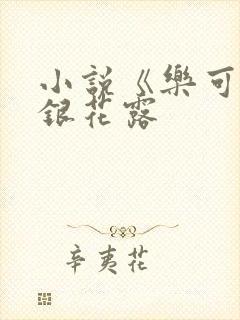 小説《樂可
銀花露
辛夷花